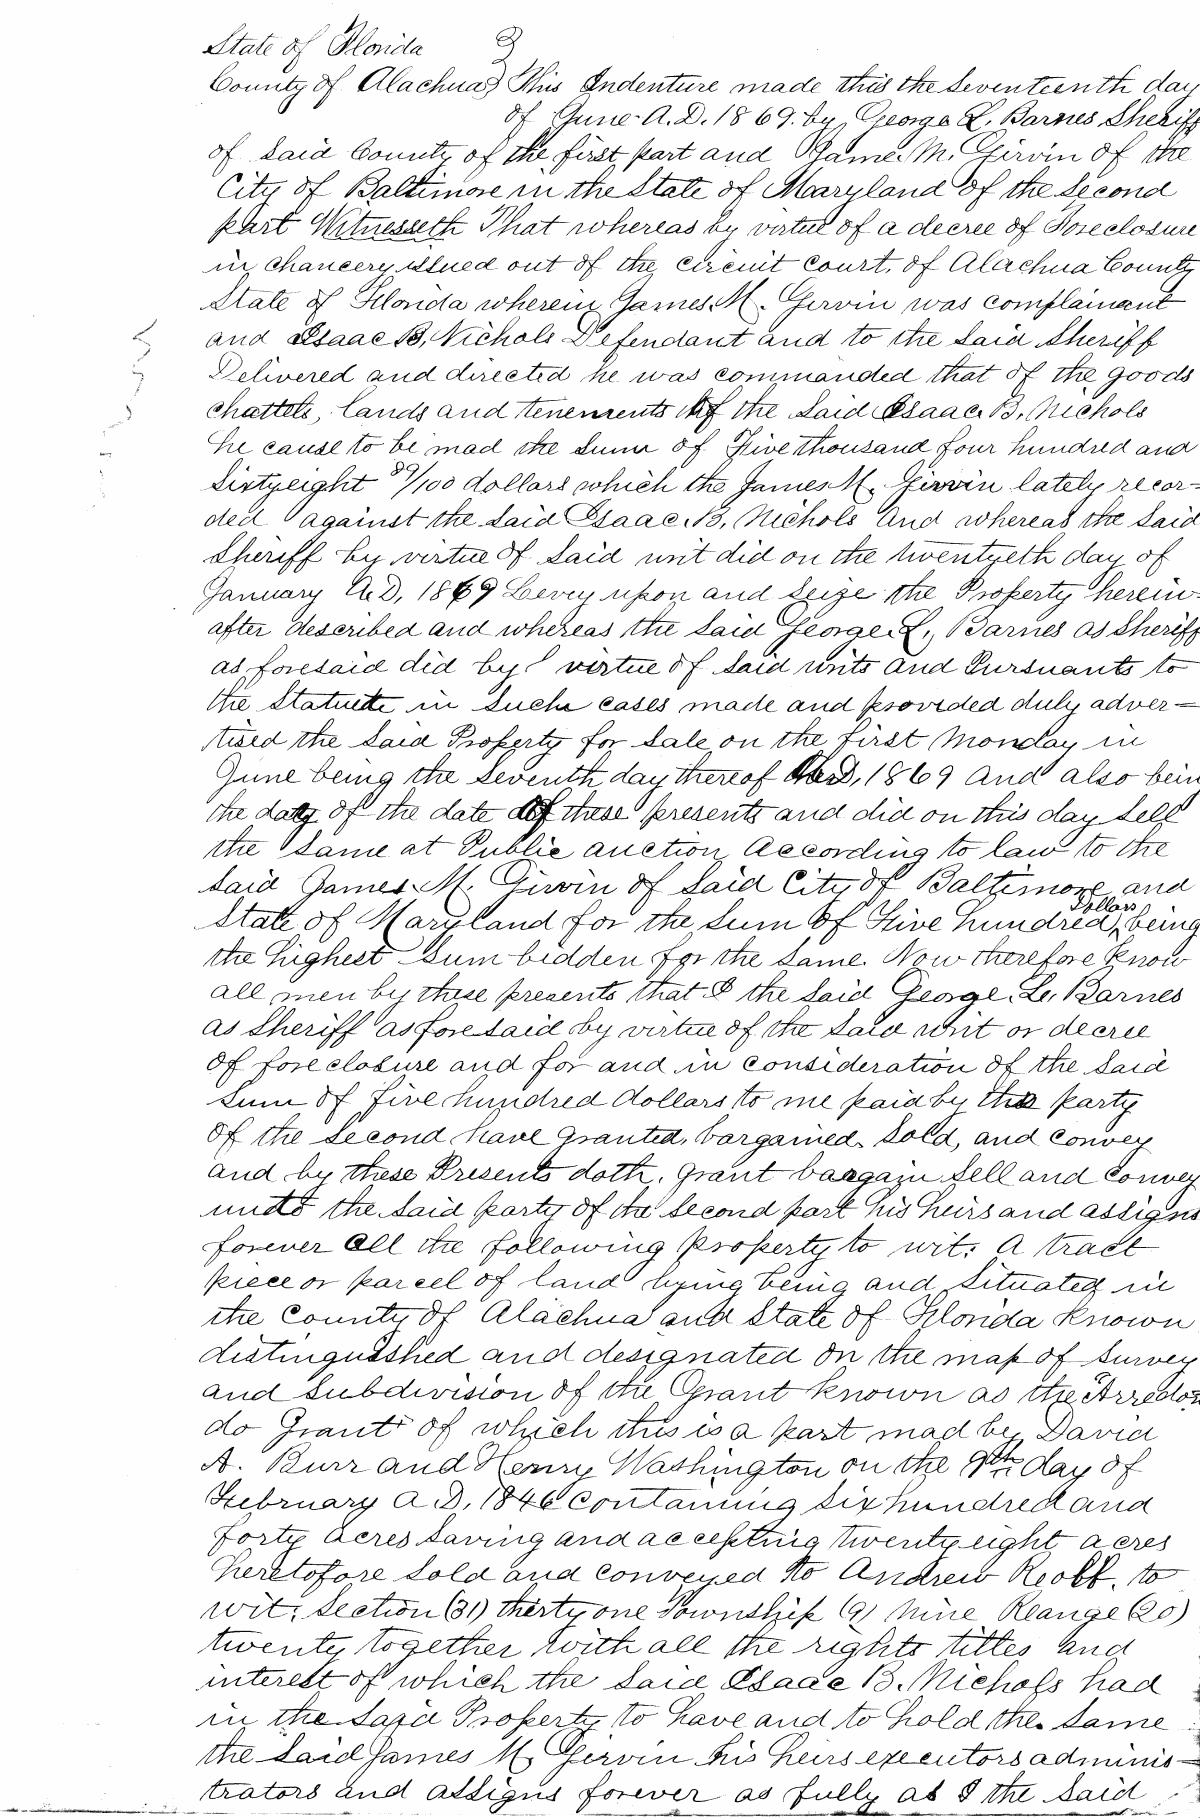 State of Florida
County of Alachua } This Indenture made this the Seventeenth day
of June A.D. 1869. by George L. Barnes Sheriff
of said County of the first part and James M. Girvin of the
City of Baltimore in the State of Maryland of the Second
part Witnesseth That whereas by virtue of a decree of Foreclosure
in chancery issued out of the circuit court. of Alachua County
State of Florida wherein James M. Girvin was complainant
and Isaac B. Nichols Defendant and to the Said Sheriff
Delivered and directed he was commanded that of the goods
chattels, lands and tenements of the Said Isaac B. Nichols
he cause to be mad the Sum of Five thousand four hundred and
Sixtyeight 89/100 dollars which the James M. Girvin lately recor=
ded against the Said Isaac B. Nichols And whereas the Said
Sheriff by virtue of Said writ did on the twentyeth day of
January A.D. 1869 Levey upon and Seize the Property herein-
after described and whereas the Said George L. Barnes as Sheriff
as foresaid did by virtue of Said writs and Pursuants to
the Statuete in Such cases made and provided duly adver=
tised the Said Property for Sale on the first Monday in
June being the Seventh day thereof A.D. 1869 And also bein
the daty of the date of these presents and did on this day Sell
the Same at Public auction According to law to the
Said James M. Girvin of Said City of Baltimore and
State of Maryland for the Sum of Five hundred Dollars being
the highest Sum bidden for the Same. Now therefore Know
all men by these presents that I the Said George L. Barnes
as Sheriff as foresaid by virtue of the Said writ or decree
of foreclosure and for and in consideration of the Said
Sum of five hundred dollars to me paid by the party
of the Second have granted, bargained, Sold, and convey
and by these Presents doth, grant bargain Sell and Convey
unto the Said party of the Second part his heirs and assigns
forever all the following property to wit: A tract
piece or parcel of land lying being and Situated in
the County of Alachua and State of Florida Known
distinguished and designated on the map of Survey
and Subdivision of the Grant known as the "Arredon
do Grant" of which this is a part mad by David
A. Burr and Henry Washington on the 9th day of
February A.D. 1846 Containing Six hundred and
forty acres Saving and accepting twentyeight acres
heretofore Sold and conveyed to Andrew to
wit: Section (31) thirty one Township (9) Nine Reange (20)
twenty together with all the rights titles and
interest of which the Said Isaac B. Nichols had
in the Said Property to have and to hold the Same
the Said James M. Girvin his heirs executors adminis=
trators and assigns forever as fully as I the Said